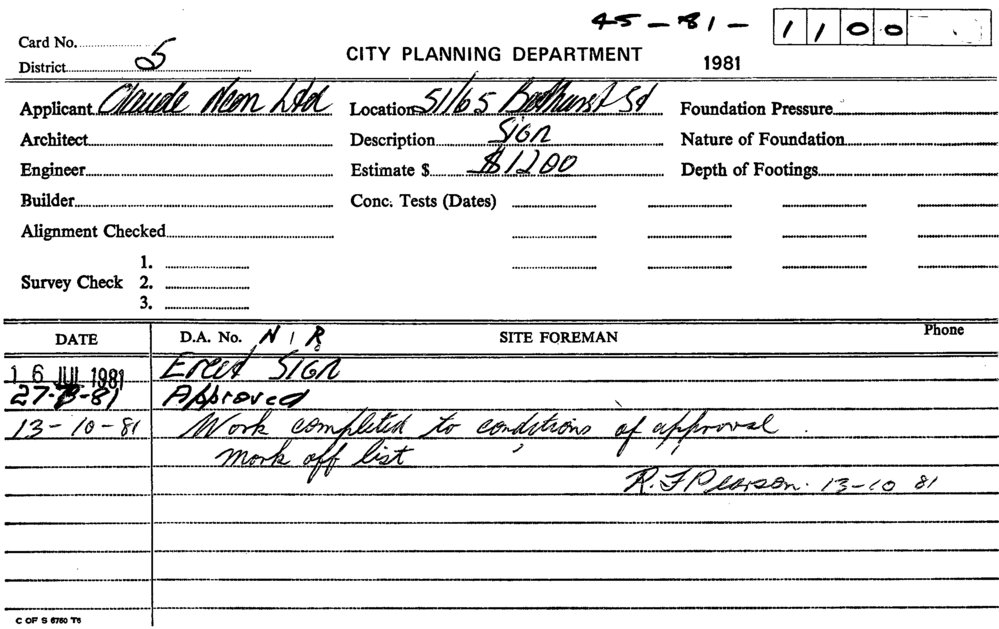 45-81- 1100
Card No.
District 5
CITY PLANNING DEPARTMENT 1981
Applicant Claude Neon Ltd Location 51/65 Bathurst St Foundation Pressure
Architect Description SIGN Nature of Foundation
Engineer Estimate $ $1200 Depth of Footings
Builder Conc. Tests (Dates)
Alignment Checked
1.
Survey Check 2.
3.
DATE D.A. No. N/R SITE FOREMAN Phone
16 JUL 1981 Erect SIGN
27-8-81 Approved
13-10-81 Work completed to conditions of approval.
mark off list
R.F Pearson. 13-10 81
C OF S 6760 T6